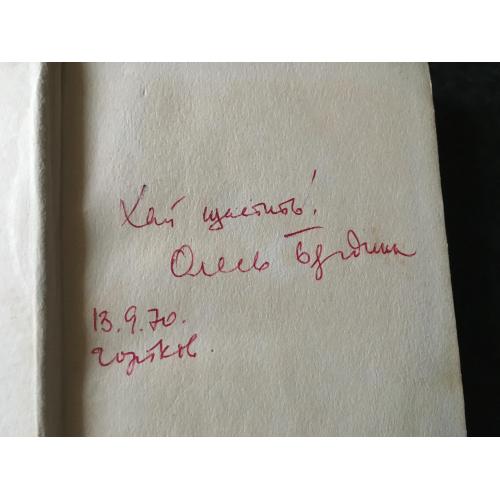 Хай щастить!
Олесь Бердник
13.9.70.
Чортків.